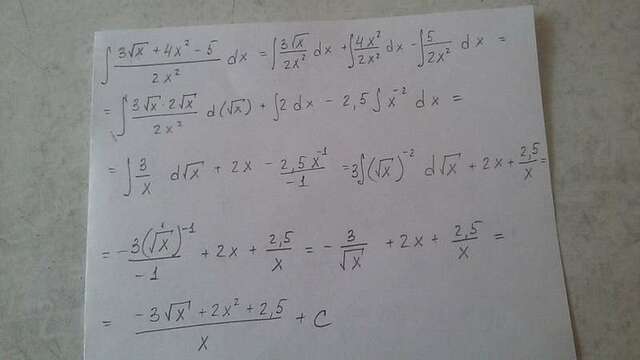 ∫ (3√x + 4x² - 5)/(2x²) dx = ∫ 3√x/(2x²) dx + ∫ 4x²/(2x²) dx - ∫ 5/(2x²) dx =
= ∫ (3√x · 2√x)/(2x²) d(√x) + ∫ 2 dx - 2,5 ∫ x⁻² dx =
= ∫ 3/x d√x + 2x - (2,5 x⁻¹)/(-1) = 3∫ (√x)⁻² d√x + 2x + 2,5/x =
= - 3(√x)⁻¹/(-1) + 2x + 2,5/x = - 3/√x + 2x + 2,5/x =
= (-3√x + 2x² + 2,5)/x + C